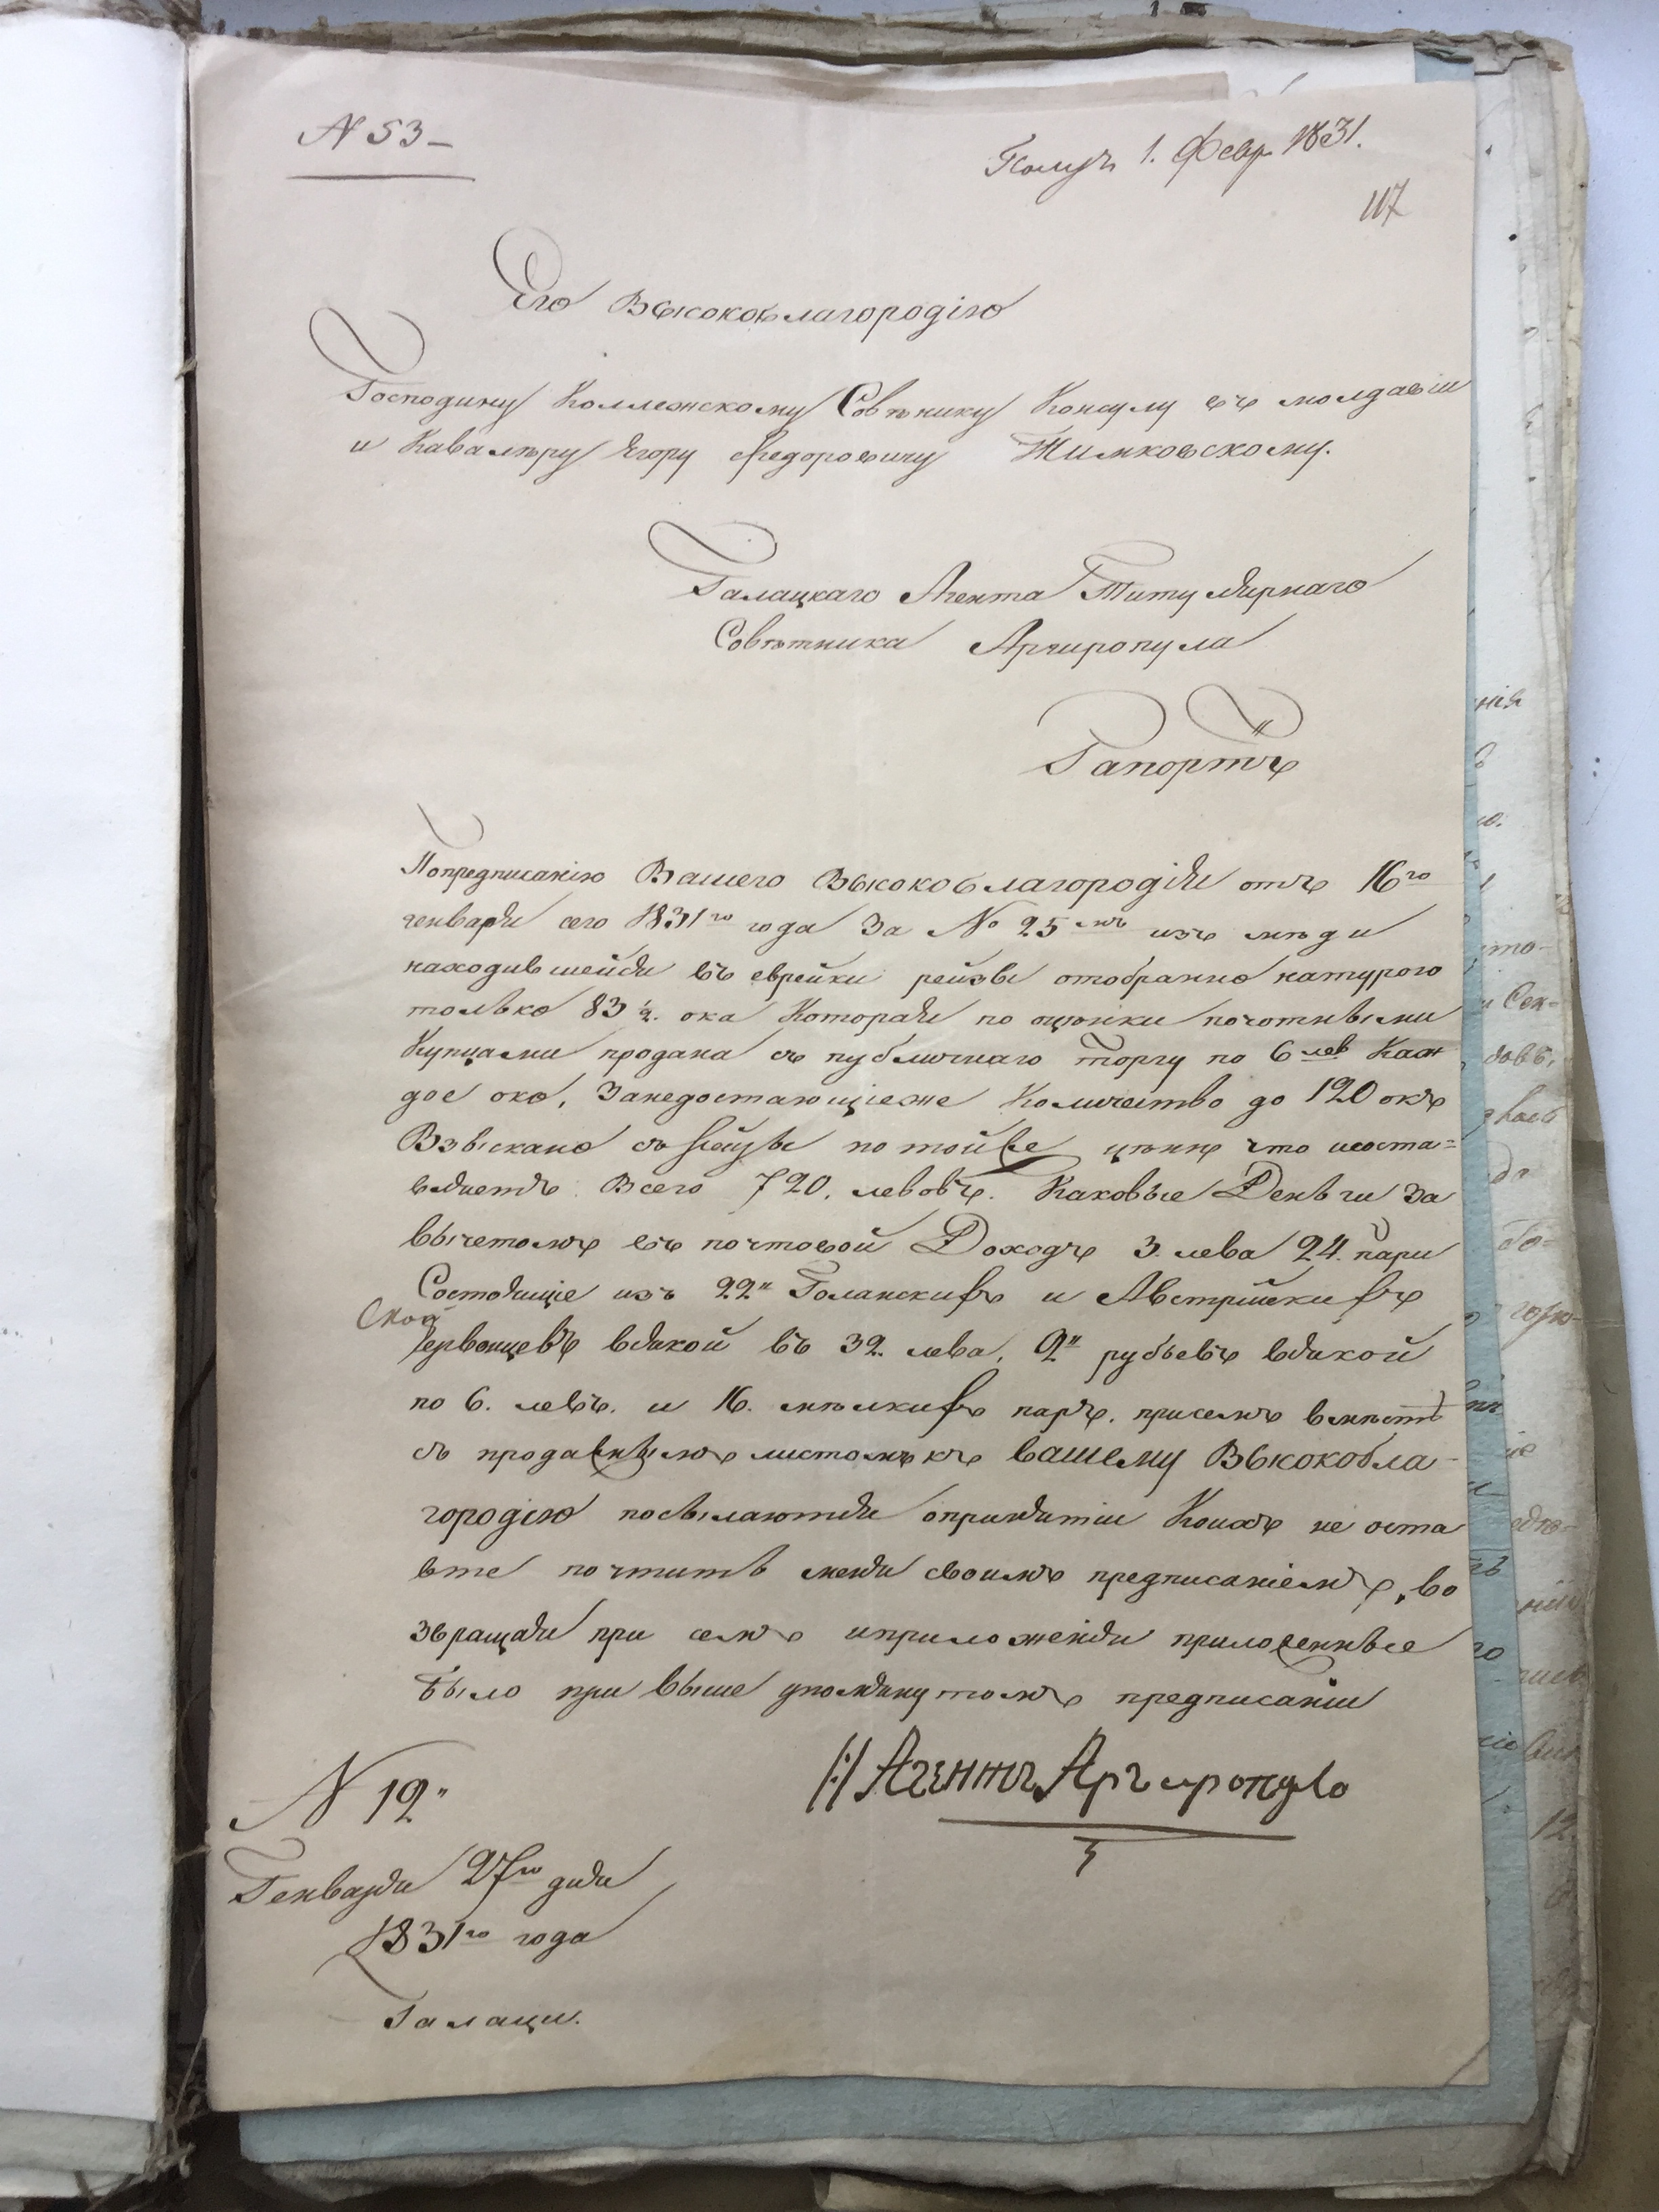 N 53 –
Получ. 1. Февр. 1831.
117
Его Высокоблагородію
Господину Коллежскому Совѣтнику Консулу въ молдавіи
и Кавалѣру Егору Федоровичу Тимковскому.
Галацкаго Агента Титулярнаго
Совѣтника Аргиропула
Рапортъ
По предписанію Вашего Высокоблагородія отъ 16го
генваря сего 1831го года за № 25мъ изъ мѣди
находившейся въ еврейки рейзы отобранно натурою
только 83 ½. ока Которая по оцѣнки почотными
Купцами продана съ публичнаго торгу по 6 лев Каж
дое око, Занедостающіеже Количество до 120 окъ
Взыскано съ Рейзы по тойже цѣнѣ что исоста=
вляетъ Всего 720. левовъ. Каковые Деньги за
вычетомъ въ почтовой Доходъ 3. лева 24. пари
Состоящіе изъ 22" Голанскихъ и Австрійскихъ
Червонцевъ всякой въ 32. лева, 2" рубьевъ всякой
по 6. левъ. и 16. мѣлкихъ паръ. присемъ вмѣстѣ
съ продажнымъ листомъ къ вашему Высокобла-
городію посылаются опринятіи Коихъ не оста
вте почтить меня своимъ предписаніемъ, во
звращая при семъ иприложенія приложенные
было при выше упомянутомъ предписаніи
Агентъ Аргиропуло
N 19"
Генваря 27го дня
1831го года
Галацы.